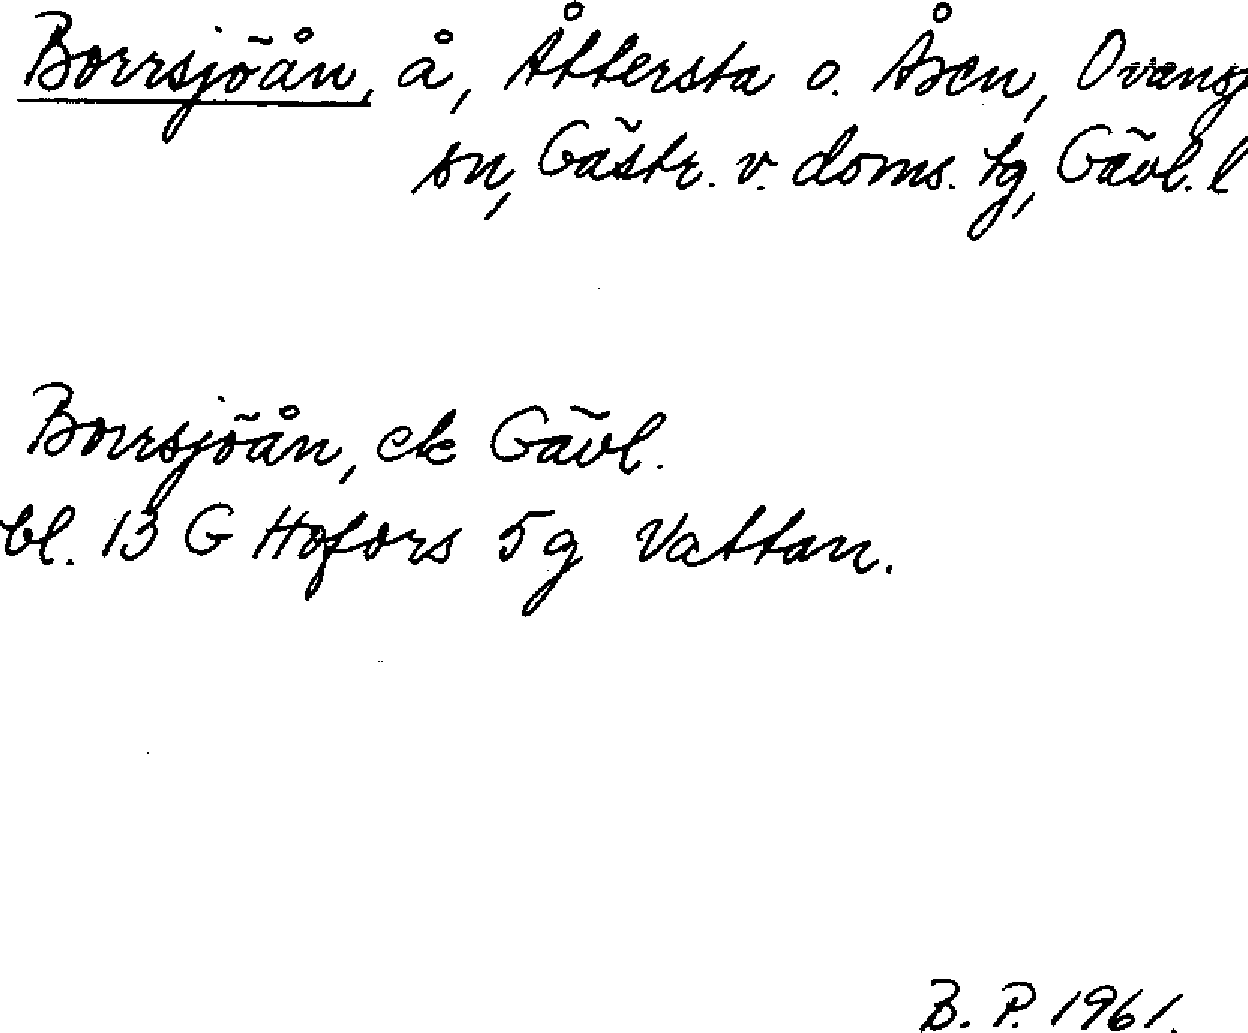 Borrsjöån, å, Åttersta o. Åsen, Ovansj
sn, Gästr. v. doms. tg, Gävl. l
Borrsjöån, ek Gävl.
bl. 13 G Hofors 5g Vattan.
B. P. 1961.